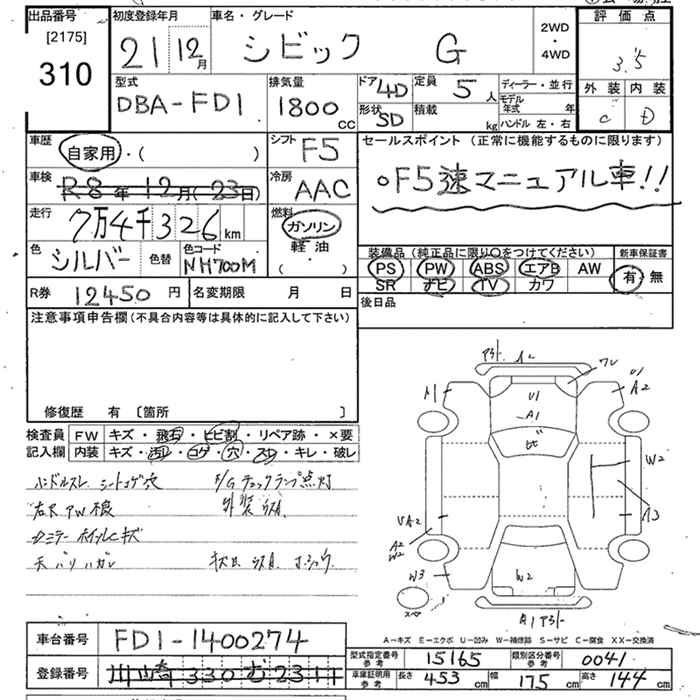 出品番号 [2175] 310
初度登録年月 21 12月
車名・グレード シビック G
2WD・4WD
評価点 3.5
外装 C 内装 D
型式 DBA-FD1
排気量 1800 CC
ドア 4D 形状 SD
定員 5人
積載 kg
ディーラー・並行
モデル年式 年
ハンドル 左・右
車歴 自家用・( )
シフト F5
セールスポイント (正常に機能するものに限ります)
○F5速マニュアル車!!
車検 R8年12月(23日)
冷房 AAC
走行 7万4千326km
燃料 ガソリン 軽油 ・( )
色 シルバー 色替
色コード NH700M
装備品 (純正品に限り○をつけてください)
PS PW ABS エアB AW
SR ナビ TV カワ
新車保証書 有・無
R券 12450円
名変期限 月 日
後日品
注意事項申告欄 (不具合内容等は具体的に記入して下さい)
修復歴 有 〔箇所 〕
検査員記入欄
FW キズ・飛石・ヒビ割・リペア跡・×要
内装 キズ・汚レ・コゲ・穴・スレ・キレ・破レ
ハンドルスレ シートコゲ穴 E/Gチェックランプ点灯
右R PW不良
キズ
天バリハガレ
A1 W2 U1 A2 W3
A-キズ E-エクボ U-凹み W-補修跡 S-サビ C-腐食 XX-交換済
車台番号 FD1-1400274
登録番号 川崎 330 む 2311
型式指定番号 参考 15165
類別区分番号 参考 0041
車庫証明用 参考 長さ 453cm 幅 175cm 高さ 144cm